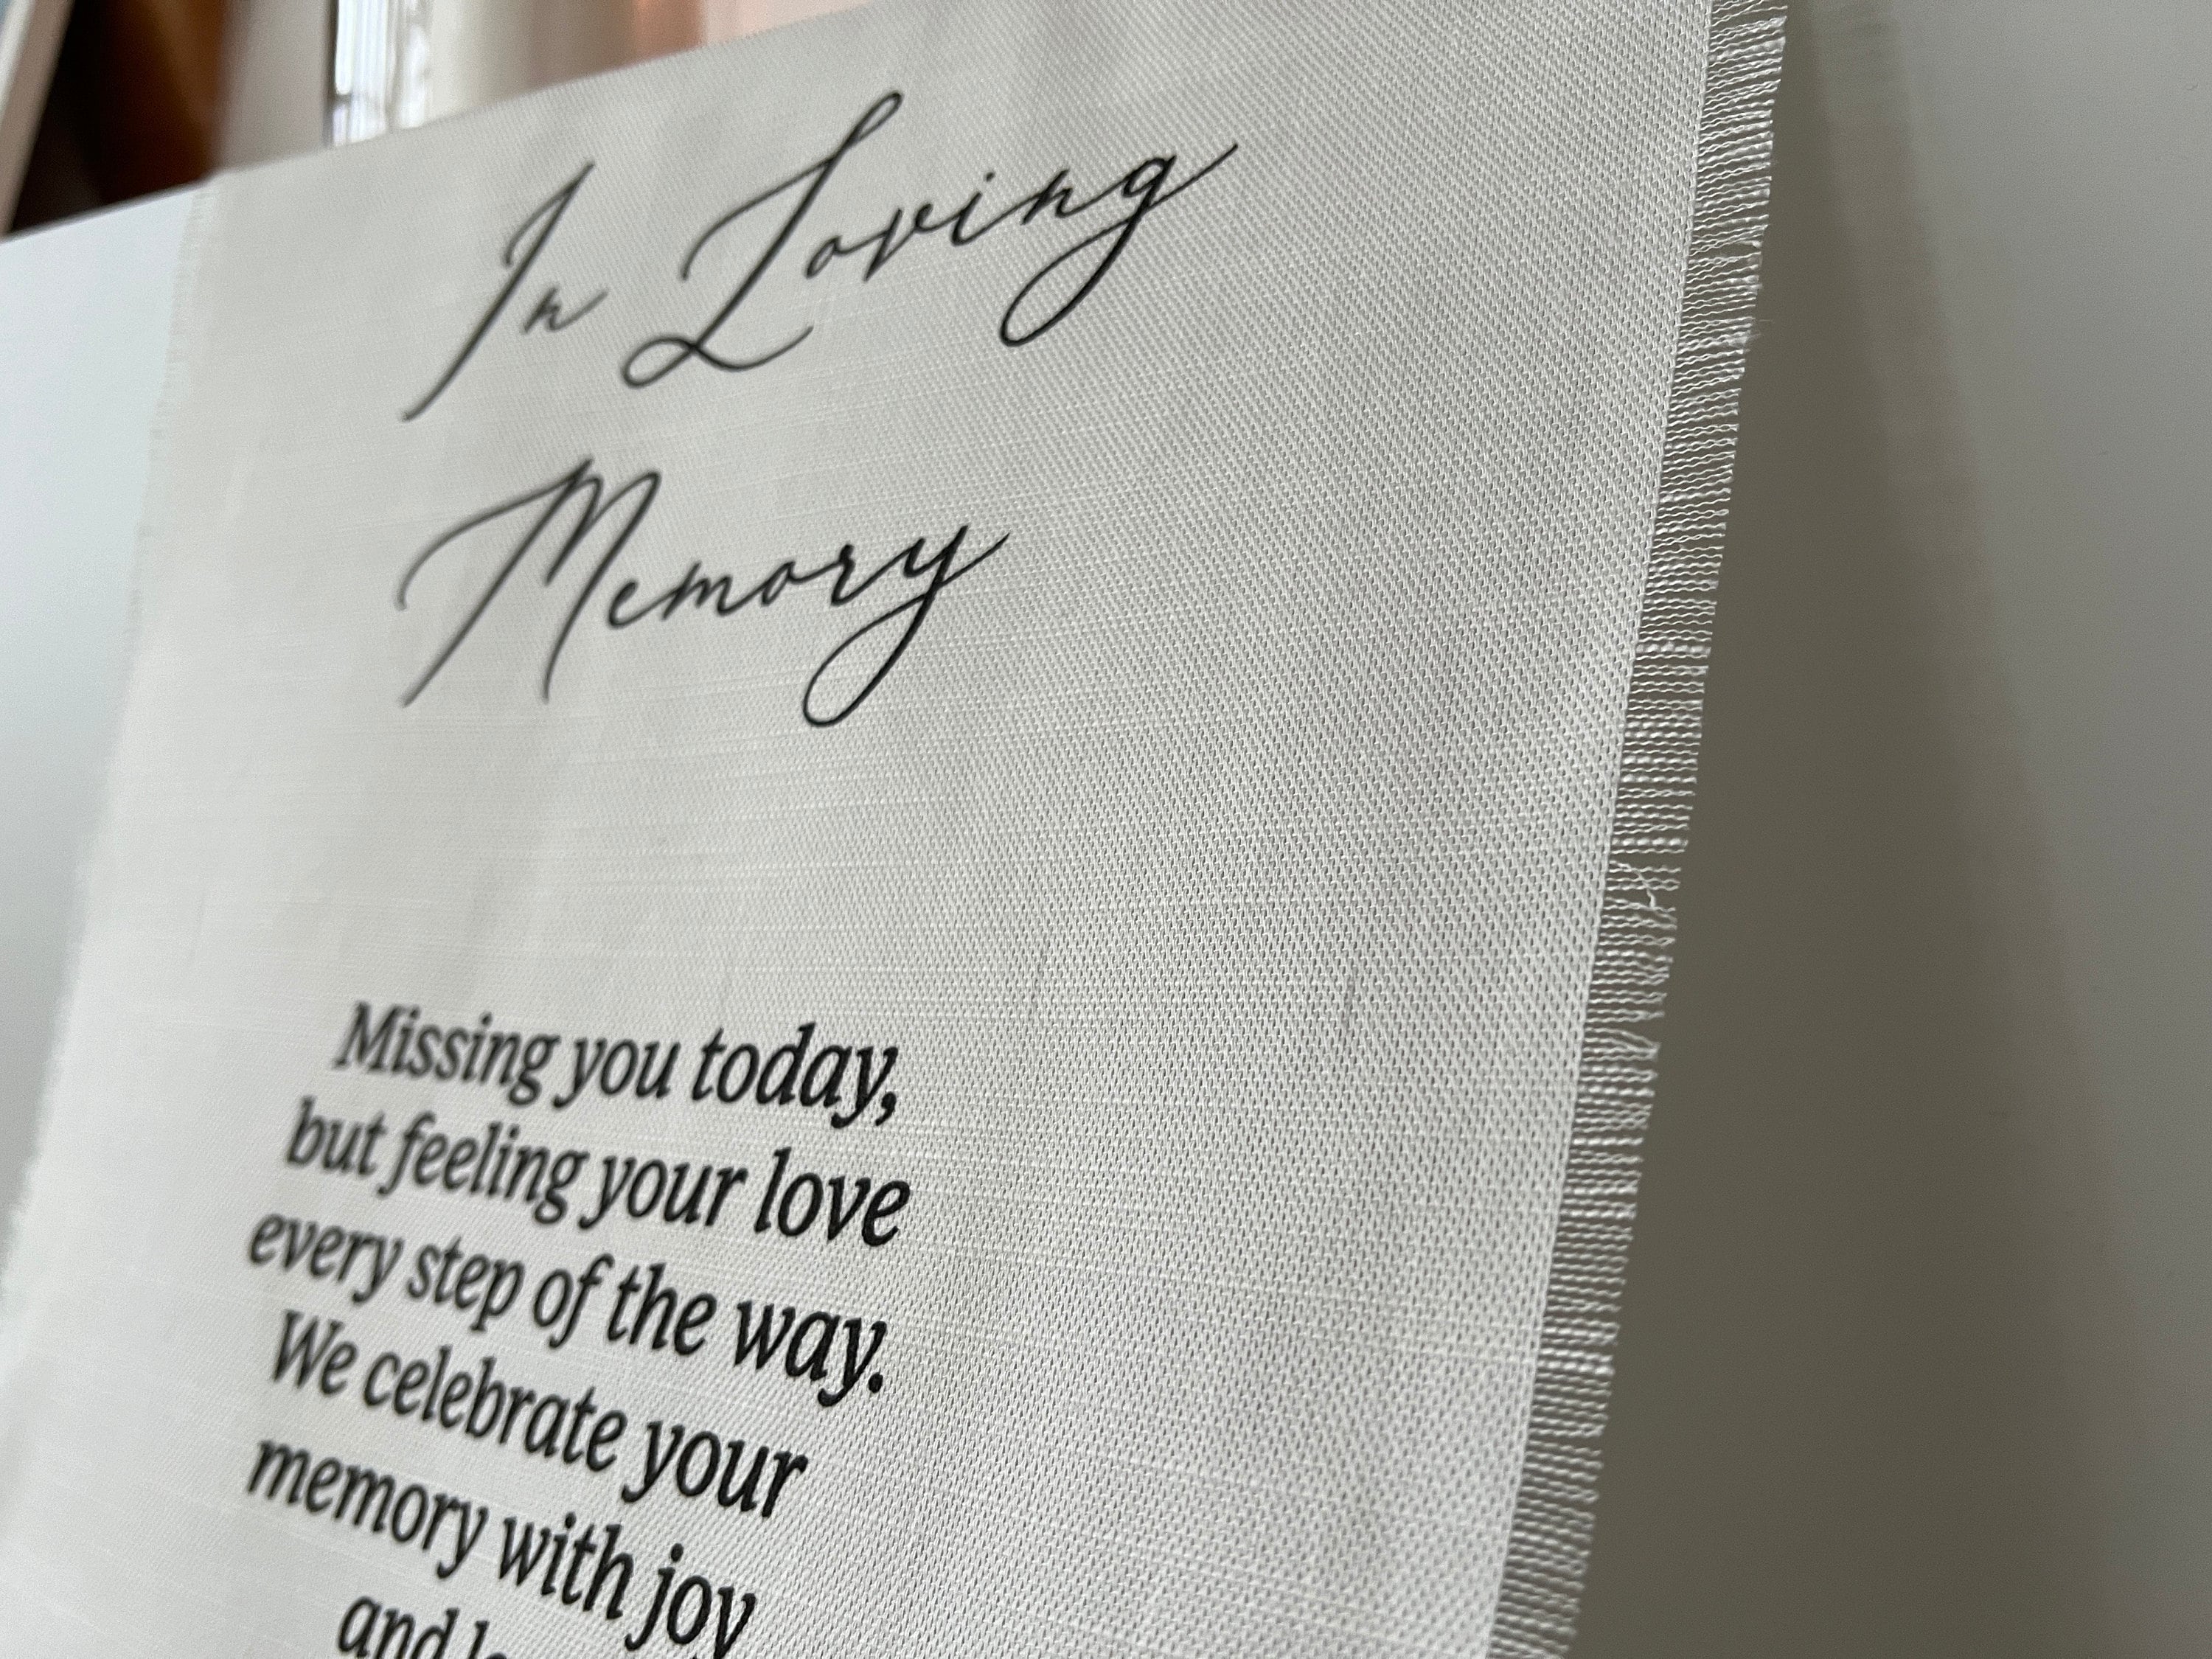 In Loving
Memory
Missing you today,
but feeling your love
every step of the way.
We celebrate your
memory with joy
and